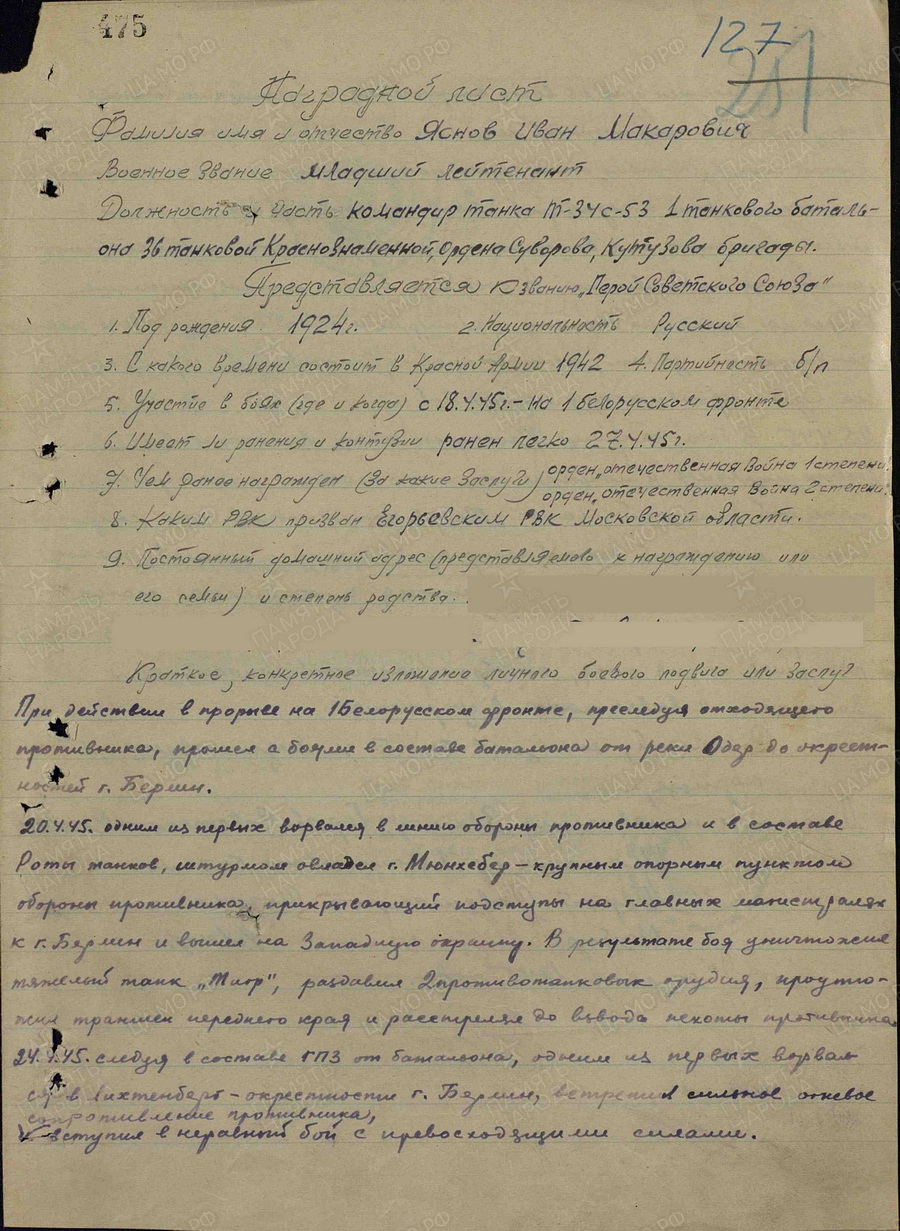 475
127
251
Наградной лист
Фамилия имя и отчество Яснов Иван Макарович
Военное звание младший лейтенант
Должность и часть командир танка Т-34 с-53 1 танкового баталь-
она 36 танковой Краснознаменной, Ордена Суворова, Кутузова бригады.
Представляется к званию „Герой Советского Союза"
1. Год рождения 1924г. 2. Национальность Русский
3. С какого времени состоит в Красной Армии 1942 4. Партийность б/п
5. Участие в боях (где и когда) с 18.4.45г. - на 1 белорусском фронте
6. Имеет ли ранения и контузии ранен легко 27.4.45г.
7. Чем ранее награжден (За какие Заслуги) орден „отечественная Война 1 степени.
орден „отечественная Война 2 степени.
8. Каким РВК призван Егорьевским РВК Московской области.
9. Постоянный домашний адрес (представляемого к награждению или
его семьи) и степень родства.
Краткое, конкретное изложение личного боевого подвига или заслуг
При действии в прорыве на 1 Белорусском фронте, преследуя отходящего
противника, прошел с боями в составе батальона от реки Одер до окрест-
ностей г. Берлин.
20.4.45. одним из первых ворвался в линию обороны противника и в составе
Роты танков, штурмом овладел г. Мюнхеберг - крупным опорным пунктом
обороны противника, прикрывающий подступы на главных магистралях
к г. Берлин и вышел на Западную окраину. В результате боя уничтожил
тяжелый танк „Тигр", раздавил 2 противотанковых орудия, проутю-
жил траншеи переднего края и расстрелял до взвода пехоты противника
24.4.45. следуя в составе ГПЗ от батальона, одним из первых ворвал-
ся в Лихтенберг - окрестности г. Берлин, встретил сильное огневое
сопротивление противника,
вступил в неравный бой с превосходящими силами.